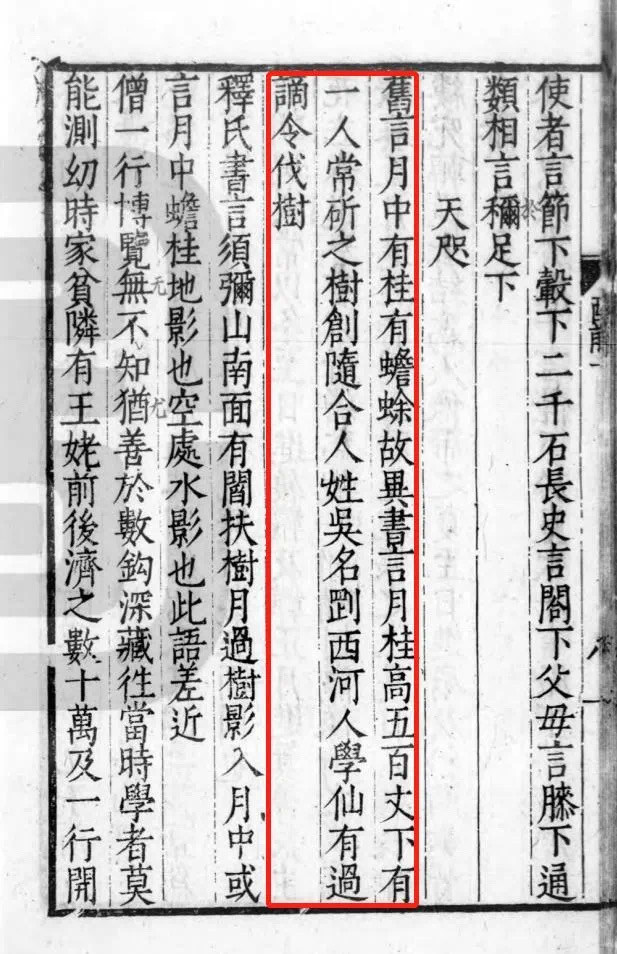 使者言節下轂下二千石長史言閤下父母言膝下通
類相言稱足下
於
天咫
舊言月中有桂有蟾蜍故異書言月桂高五百丈下有
一人常斫之樹創隨合人姓吳名剛西河人學仙有過
謫令伐樹
釋氏書言須彌山南面有閻扶樹月過樹影入月中或
言月中蟾桂地影也空處水影也此語差近
僧一行博覽無不知猶善於數鈎深藏往當時學者莫
无
尤
能測幼時家貧隣有王姥前後濟之數十萬及一行開